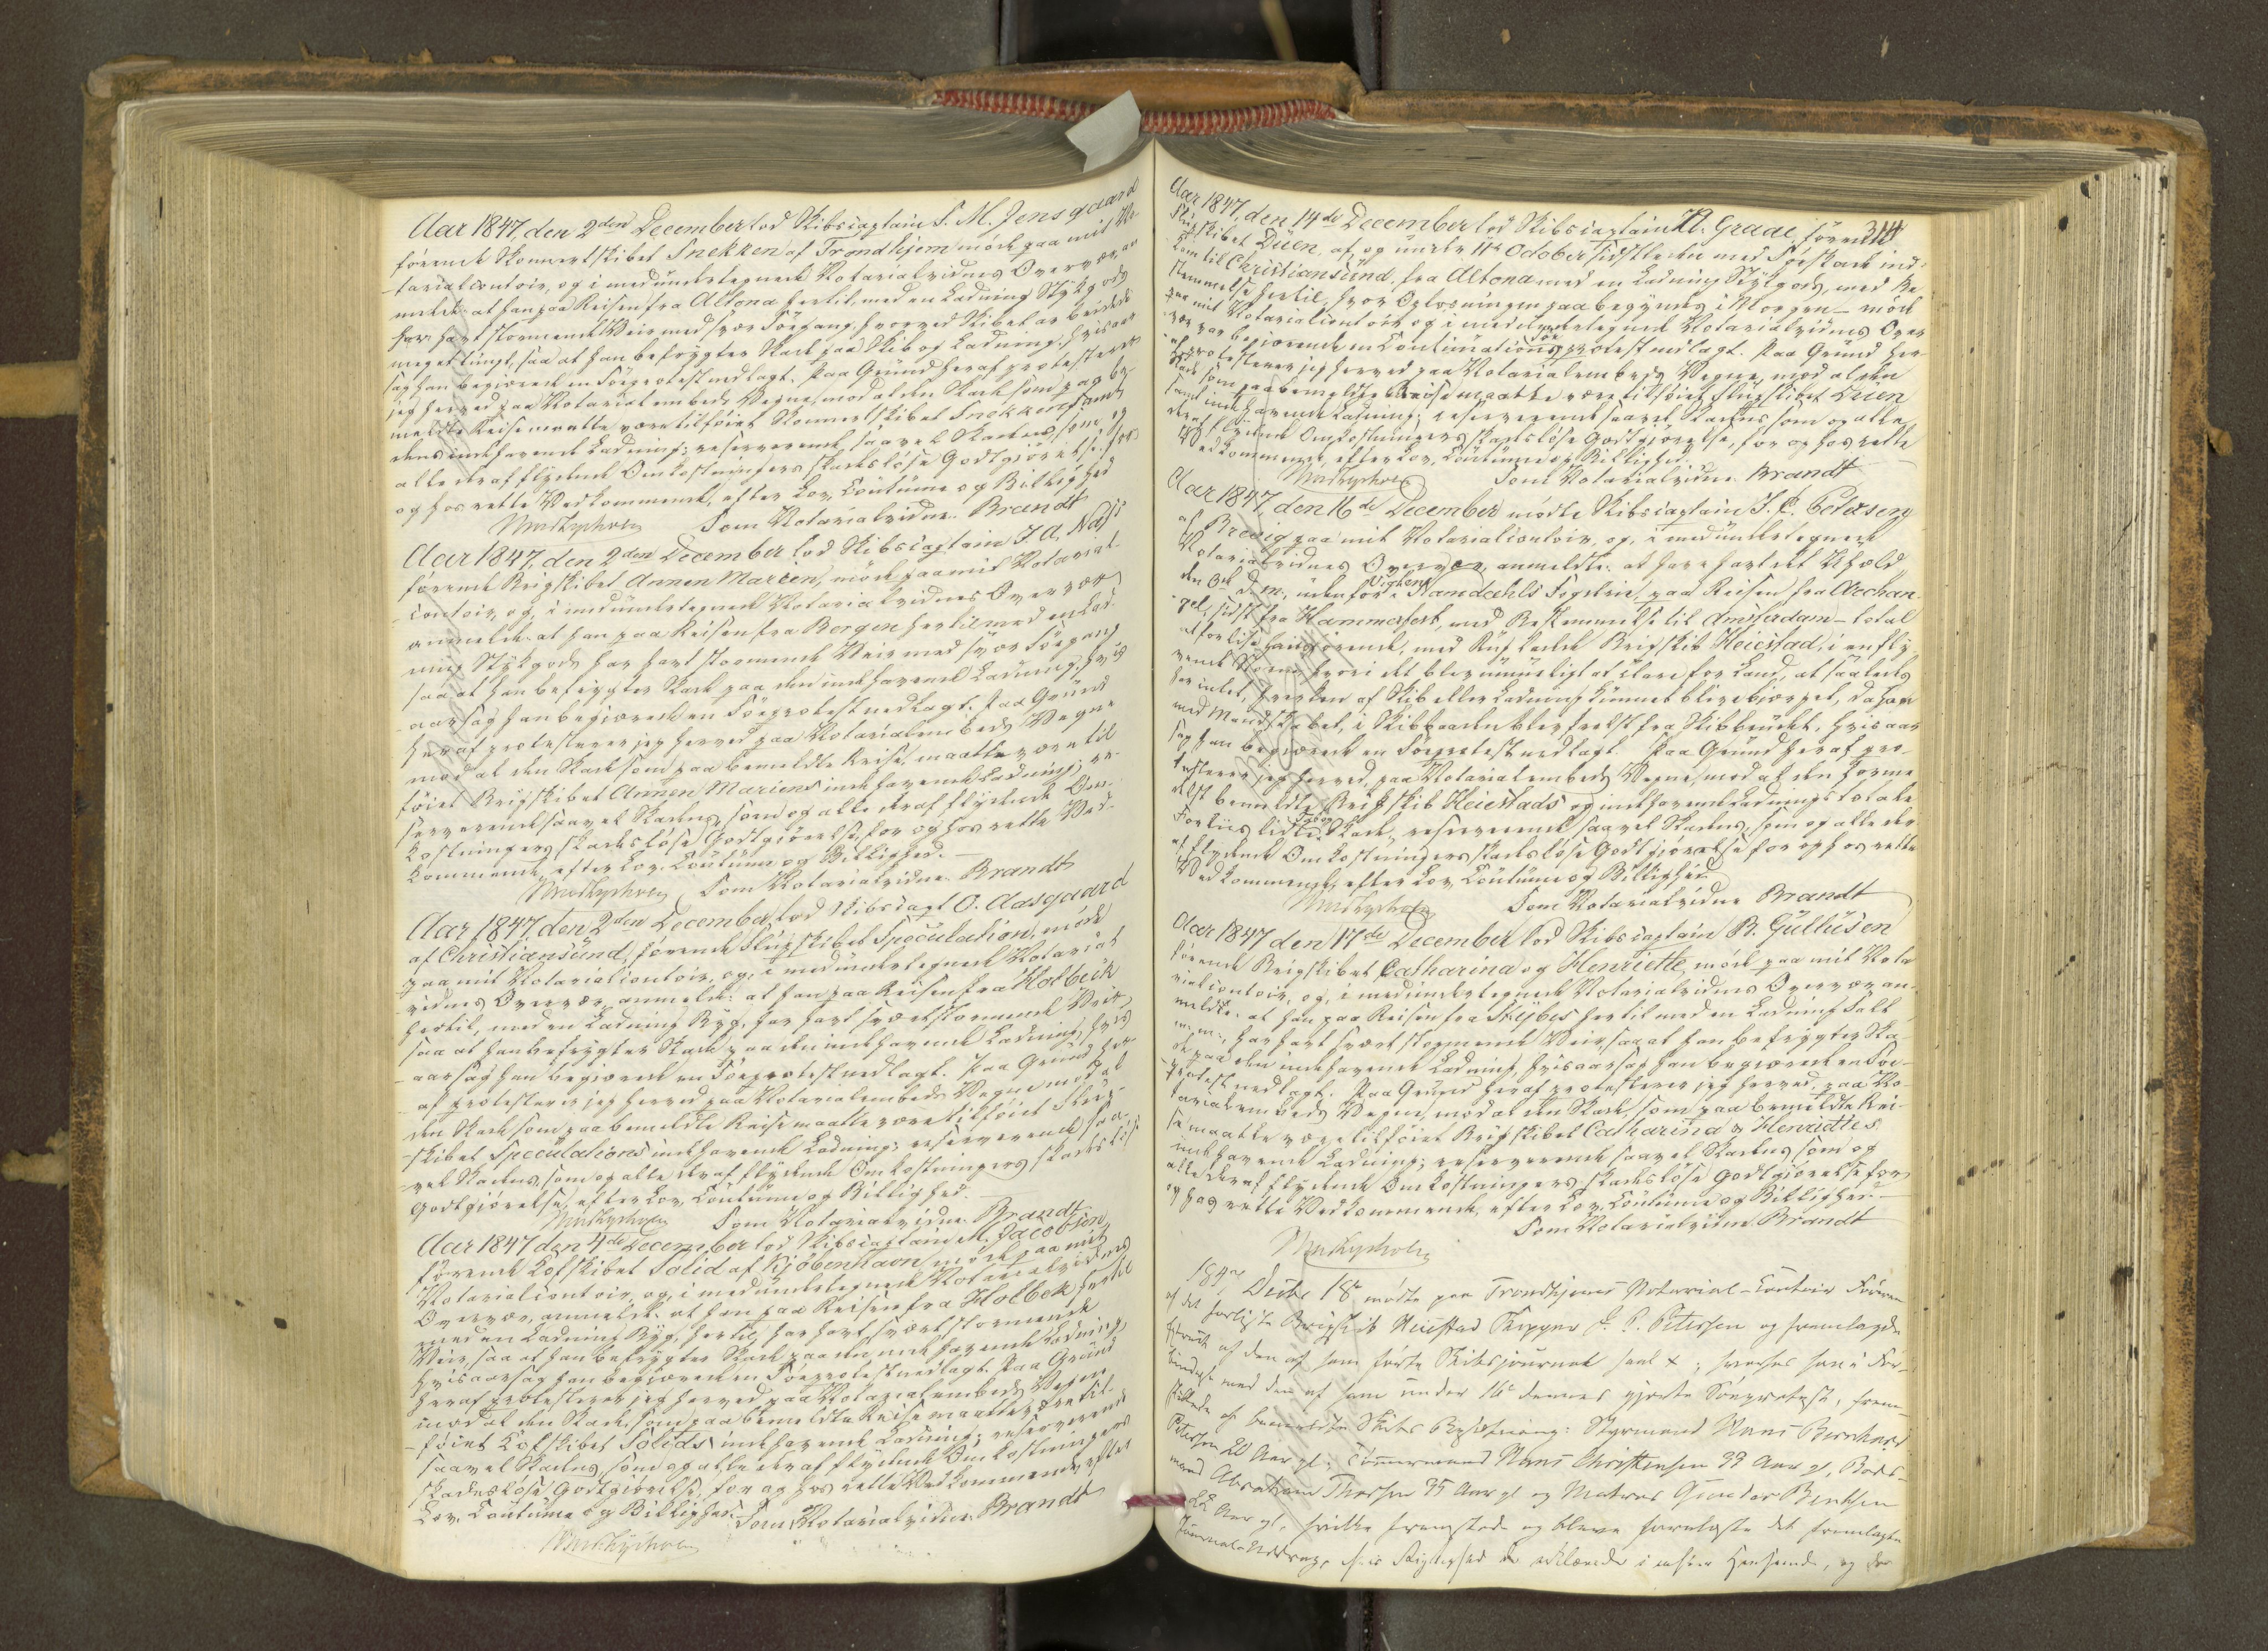 Aar 1847, den 2den December lod Skibscaptain S. M. Jensgaard
förende Skonnertskibet Snekken af Trondhjem möde paa mit No-
tarialcontoir, og i medundertegnede Notarialvidnes Overvær, an-
melde: at han paa Reisen fra Altona hertil, med en Ladning Stykgods
har havt stormende Veir med svær Söegang, hvorved Skibet ar beidede
meget tungt, saa at han befrygter Skade paa Skib og Ladning. Hvisaar
sag han begiærede en Söeprotest nedlagt. Paa Grund heraf protesterer
jeg herved paa Notarialembeds Vegne, mod al den Skade som paa be-
meldte Reise maatte være tilföiet Skonnertskibet Snekken samt
dens indehavende Ladning; reserverende saavel Skadens, som og
alle deraf flydende Omkostningers skadeslöse Godtgiörelse, for
og hos rette Vedkommende, efter Lov, Coutume og Billighed
Som Notarialvidne. Brandt
Aar 1847, den 2den December lod Skibscaptain J. A. Næss
förende Brigskibet Annen Marien, möde paa mit Notarial-
contoir, og, i medundertegnede Notarialvidnes Overvær
anmelde: at han paa Reisen fra Bergen hertil med en Lad-
ning Stykgods har havt stormende Veir med svær Söegang
saa at han befrygter Skade paa den indehavende Ladning. Hvis
aarsag han begiærede en Söeprotest nedlagt. Paa Grund
heraf protesterer jeg herved paa Notarialembeds Vegne
mod al den Skade som paa bemeldte Reise maatte være til
föiet Brigskibet Annen Mariens indehavende Ladning; re-
serverende saavel Skadens, som og alle deraf flydende Om-
kostningers skadeslöse Godtgiörelse, for og hos rette Ved-
kommende, efter Lov, Coutume og Billighed.
Som Notarialvidne. Brandt
Aar 1847, den 2den December, lod Skibscapt O. Aasgaard
af Christiansund, förende Slupskibet Speculation, möde
paa mit Notarialcontoir, og, i medundertegnede Notarial
vidnes Overvær, anmelde: at han paa Reisen fra Holbeck
hertil, med en Ladning Rug, har havt svært stormende Veir
saa at han befrygter Skade paa den indehavende Ladning, hvis
aarsag han begiærede en Söeprotest nedlagt. Paa Grund her-
af protesterer jeg herved paa Notarialembeds Vegne mod al
den Skade som paa bemeldte Reise maatte være tilföiet Slup-
skibet Speculations indehavende Ladning; reserverende saa-
vel Skadens, som og alle deraf flydende Omkostningers skadeslöse
Godtgiörelse, efter Lov, Coutume og Billighed.
Som Notarialvidne. Brandt
Aar 1847 den 4de December lod Skibscaptain M. Jacobsen
förende Kofskibet Solid af Kjöbenhavn möde paa mit
Notarialcontoir, og, i medundertegnede Notarialvidnes
Overvær, anmelde: at han paa Reisen fra Holbek hertil
med en Ladning Rug, hertil, har havt svært stormende
Veir, saa at han befrygter Skade paa den indehavende Ladning,
hvisaarsag han begiærede en Söeprotest nedlagt. Paa Grund
heraf protesterer jeg herved paa Notarialembeds Vegne
mod al den Skade, som paa bemeldte Reise maatte være til-
föiet Kofskibet Solids indehavende Ladning; reserverende
saavel Skadens, som og alle deraf flydende Omkostningers
skadeslöse Godtgiörelse, for og hos rette Vedkommende, efter
Lov, Coutume og Billighed. Som Notarialvidne. Brandt
314
Aar 1847, den 14de December lod Skibscaptain N. Graae, förende
Slupskibet Duen, af, og under 11te October sidstleden med Söeskade ind-
kom til Christiansund, fra Altona med en Ladning Stykgods, med Be-
stemmelse hertil, hvor Oplosningen paabegyndes i Morgen - möde
paa mit Notarialcontoir og i medundertegnede Notarialvidnes Over
vær var begiærende en Continuations Söe protest nedlagt. Paa Grund her-
af protesterer jeg herved paa Notarialembeds Vegne mod al den
Skade som paa bemeldte Reise maatte være tilföiet Slupskibet Duen
samt indehavende Ladning; reserverende saavel Skadens som og alle
deraf flydende Omkostningers skadeslöse Godtgiörelse, for og hos rette
Vedkommende, efter Lov, Coutume og Billighed.
Som Notarialvidne. Brandt
Aar 1847, den 16de December mödte Skibscaptain J. C. Petersen
af Brevig paa mit Notarialcontoir, og, i medundertegnede
Notarialvidnes Overvær, anmeldte: at have havt det Uheld
den 3de d. m., udenfor Vigten i Namdahls Fogderie, paa Reisen fra Archan-
gel, sidst fra Hammerfest, med Bestemmelse til Amsterdam - total
at forlise havnsögende, med Rug ladede Brigskib Heiestad, i en fly-
vende Storm, hvori det blev umueligt at klare for Land, at saaledes
har intet, hverken af Skib eller Ladning kunnet blive bierget, da han
med Mandskabet, i Skibbaaden blev frelst fra Skibbrudet, Hvisaar
sag han begiærede en Söeprotest nedlagt. Paa Grund heraf pro-
testerer jeg herved, paa Notarialembeds Vegne, mod al den forme-
delst bemeldte Brigskib Heiestads og indehavende Ladnings totale
Forliis lidte Skade, reserverende saavel Skadens, som og alle der-
af flydende Omkostningers skadeslöse Godtgiörelse for og hos rette
Vedkommende, efter Lov, Coutume og Billighed
Som Notarialvidne Brandt
Aar 1847 den 17de December lod Skibscaptain B. Gullusen
förende Brigskibet Catharina og Henriette, möde paa mit Nota
rialcontoir, og, i medundertegnede Notarialvidnes Overvær an-
meldte: at han paa Reisen fra St Ybes hertil med en Ladning Salt
m: m:, har havt svært stormende Veir, saa at han befrygter Ska-
de paa den indehavende Ladning, hvisaarsag han begiærede en Söe-
protest nedlagt. Paa Grund heraf protesterer jeg herved, paa No-
tarialembeds Vegne, mod al den Skade, som paa bemeldte Rei-
se maatte være tilföiet Brigskibet Catharina og Henriettes
indehavende Ladning; reserverende saavel Skadens som og
alle deraf flydende Omkostningers skadeslöse Godtgiörelse for
og hos rette Vedkommende, efter Lov, Coutume og Billighed.
Som Notarialvidne. Brandt
1847 Decbr 18 mödte paa Trondhjems Notarial-Contoir Föreren
af det forliste Brigskib Heiestad Skipper J. C. Petersen og fremlagde
Extract af den af ham förte Skibsjournal saal. x; hvorhos han i For-
bindelse med den af ham under 16de dennes gjorte Söeprotest, frem-
stillede af bemeldte Skibs Besætning: Styrmand Hans Bernhard
Petersen 20 Aar gl., Tömmermand Hans Christensen 33 Aar gl, Baads-
mand Abraham Thorsen 35 Aar gl og Matros Gunder Bentsen
22 Aar gl, hvilke fremstode og bleve forelæste det fremlagte
Journal-Uddrag, hvis Rigtighed de erklærede i enhver Henseende, og der